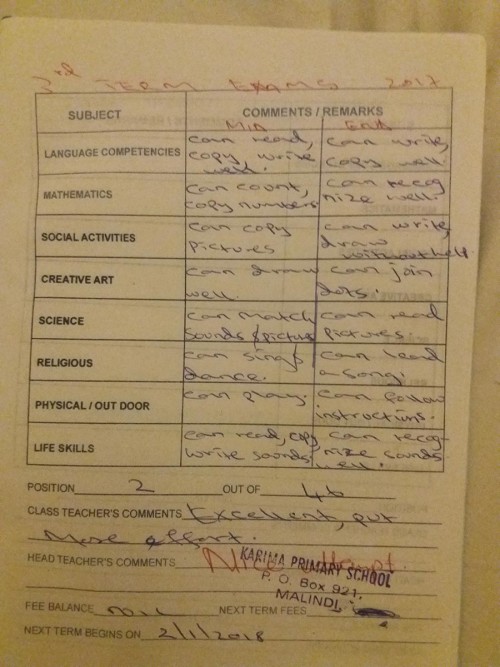 3rd TERM EXAMS 2017
SUBJECT COMMENTS / REMARKS
MID END
LANGUAGE COMPETENCIES can read, copy, write well. can write, copy well.
MATHEMATICS can count, copy numbers can recog nize well.
SOCIAL ACTIVITIES can copy pictures can write, draw without help
CREATIVE ART can draw well. can join dots.
SCIENCE can match sounds & picture can read pictures.
RELIGIOUS can sing & dance. can lead a song.
PHYSICAL / OUT DOOR can play. can follow instructions.
LIFE SKILLS can read, copy, write sounds can recog- nize sounds well.
POSITION 2 OUT OF 46
CLASS TEACHER'S COMMENTS Excellent, put
More effort.
HEAD TEACHER'S COMMENTS Nice attempt.
KARIMA PRIMARY SCHOOL
P. O. Box 921,
MALINDI
FEE BALANCE nil NEXT TERM FEES
NEXT TERM BEGINS ON 2/1/2018